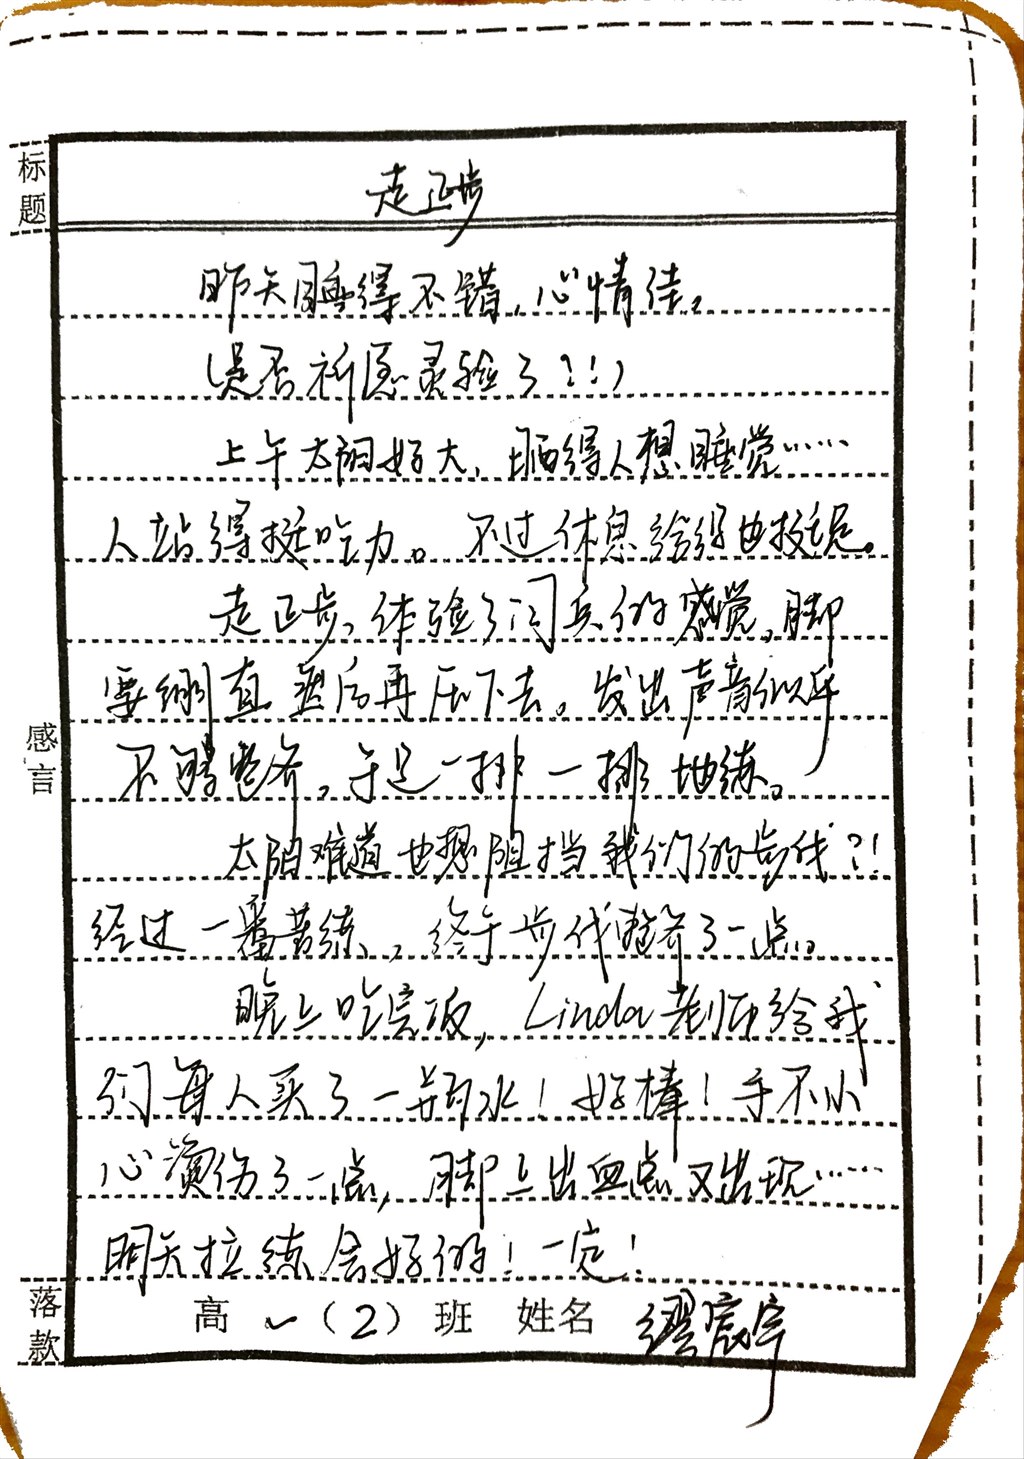 标题
走正步
昨天睡得不错,心情佳。
(是否祈愿灵验了?!)
上午太阳好大,晒得人想睡觉……
人站得挺吃力。不过休息给得也挺绝。
走正步,体验了阅兵的感觉。脚
要绷直然后再压下去。发出声音似乎
不够整齐。于是一排一排地练。
太阳难道也想阻挡我们的步伐?!
经过一番苦练,终于步伐整齐了一点。
感言
晚上吃完饭,Linda老师给我
们每人买了一瓶水!好棒!手不小
心烫伤了一点,脚上出血点又出现……
明天拉练会好的!一定!
落款
高一(2)班 姓名 缪宸宇